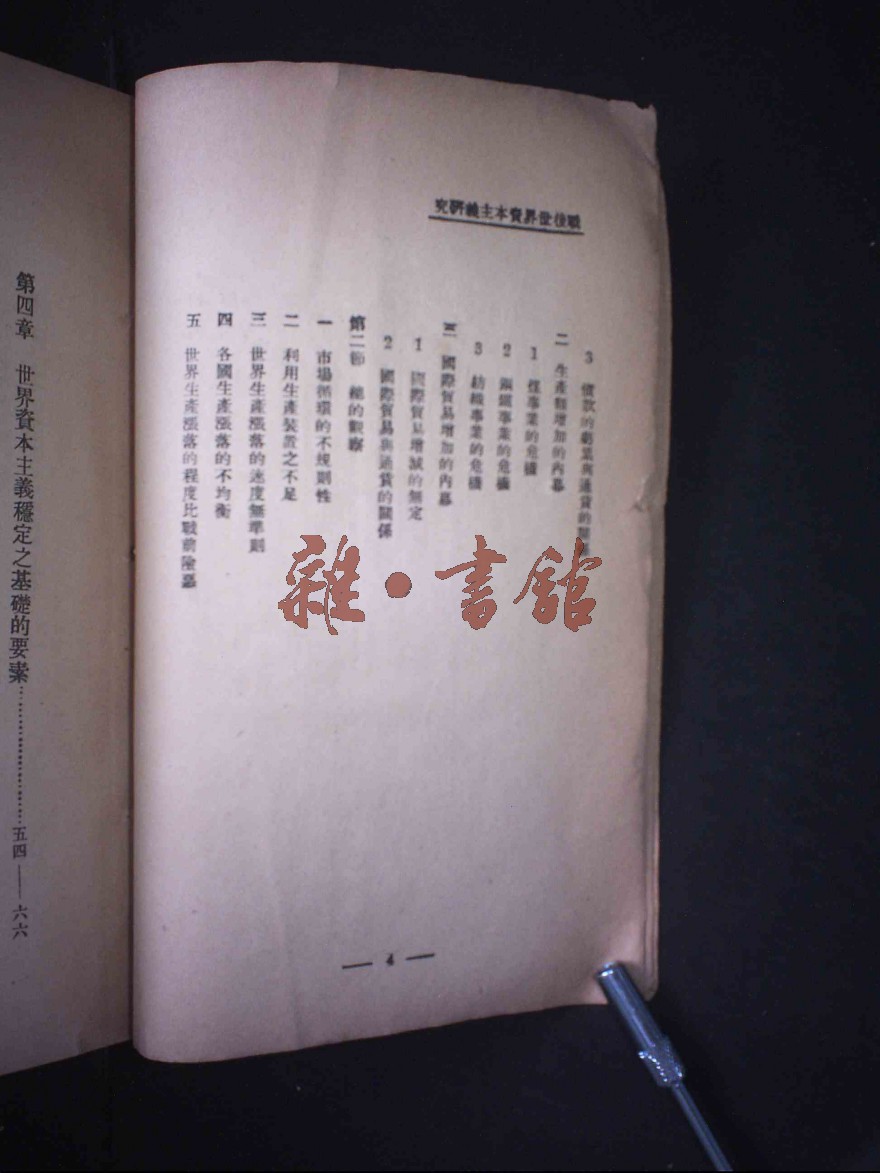 戰後世界資本主義研究
3 償款的
與通貨的關
二 生產額增加的內幕
1 煤事業的危機
2 鋼鐵事業的危機
3 紡織事業的危機
三 國際貿易增加的內幕
1 國際貿易增減的無定
2 國際貿易與通貨的關係
第二節 總的觀察
一 市場循環的不規則性
二 利用生產裝置之不足
三 世界生產漲落的速度無準則
四 各國生產漲落的不均衡
五 世界生產漲落的程度比戰前險惡
— 4 —
第四章 世界資本主義穩定之基礎的要素⋯⋯⋯⋯⋯⋯五四——六六
雜·書館